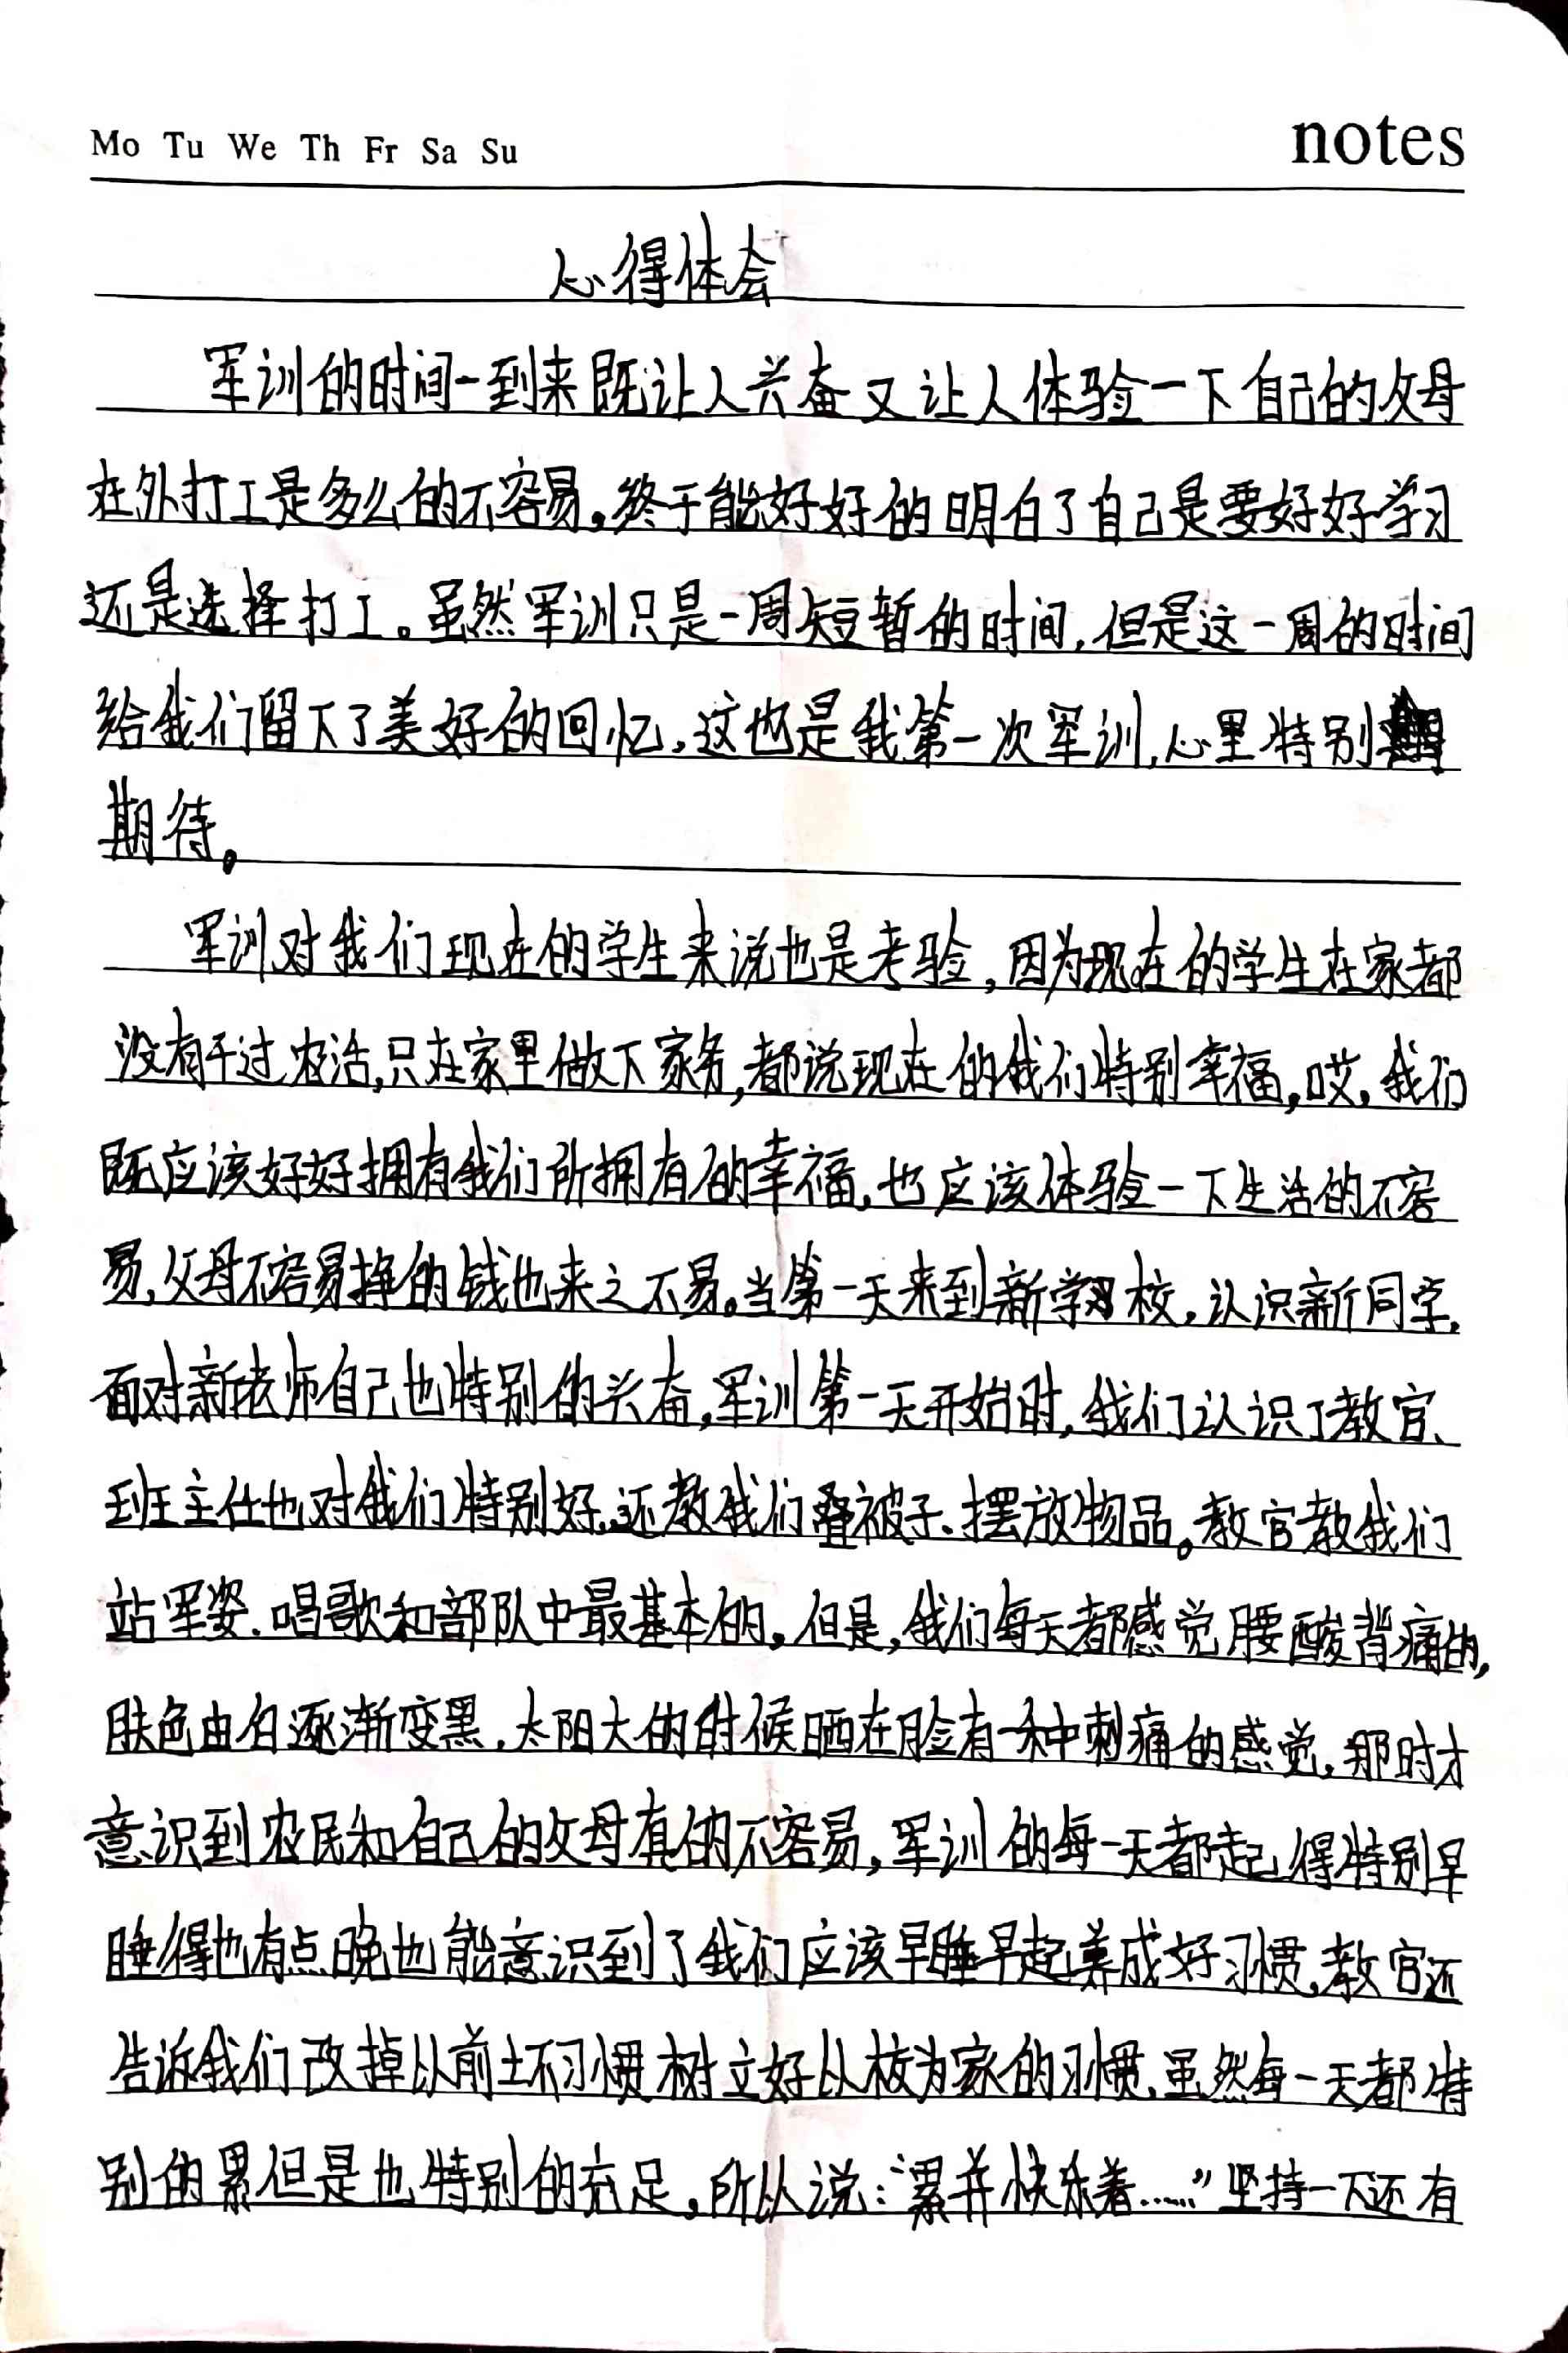 Mo Tu We Th Fr Sa Su
notes
心得体会
军训的时间一到来既让人兴奋又让人体验一下自己的父母
在外打工是多么的不容易。终于能好好的明白了自己是要好好学习
还是选择打工。虽然军训只是一周短暂的时间,但是这一周的时间
给我们留下了美好的回忆,这也是我第一次军训,心里特别
期待。
军训对我们现在的学生来说也是考验,因为现在的学生在家都
没有干过农活,只在家里做下家务,都说现在的我们特别幸福,哎,我们
既应该好好拥有我们所拥有的幸福,也应该体验一下生活的不容
易,父母不容易挣的钱也来之不易。当第一天来到新学校,认识新同学,
面对新老师自己也特别的兴奋,军训第一天开始时,我们认识了教官、
班主任也对我们特别好,还教我们叠被子、摆放物品。教官教我们
站军姿、唱歌和部队中最基本的。但是,我们每天都感觉腰酸背痛的,
肤色由白逐渐变黑,太阳大的时候晒在脸有一种刺痛的感觉,那时才
意识到农民和自己的父母真的不容易,军训的每一天都起得特别早
睡得也有点晚也能意识到了我们应该早睡早起养成好习惯,教官还
告诉我们改掉以前坏习惯树立好以校为家的习惯,虽然每一天都特
别的累但是也特别的充足。所以说:“累并快乐着……”坚持一下还有